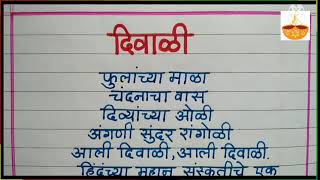 दिवाळी
फुलांच्या माळा
चंदनाचा वास
दिव्यांच्या ओळी
अंगणी सुंदर रांगोळी
आली दिवाळी,आली दिवाळी.
हिंदूंच्या महान संस्कृतीचे एक